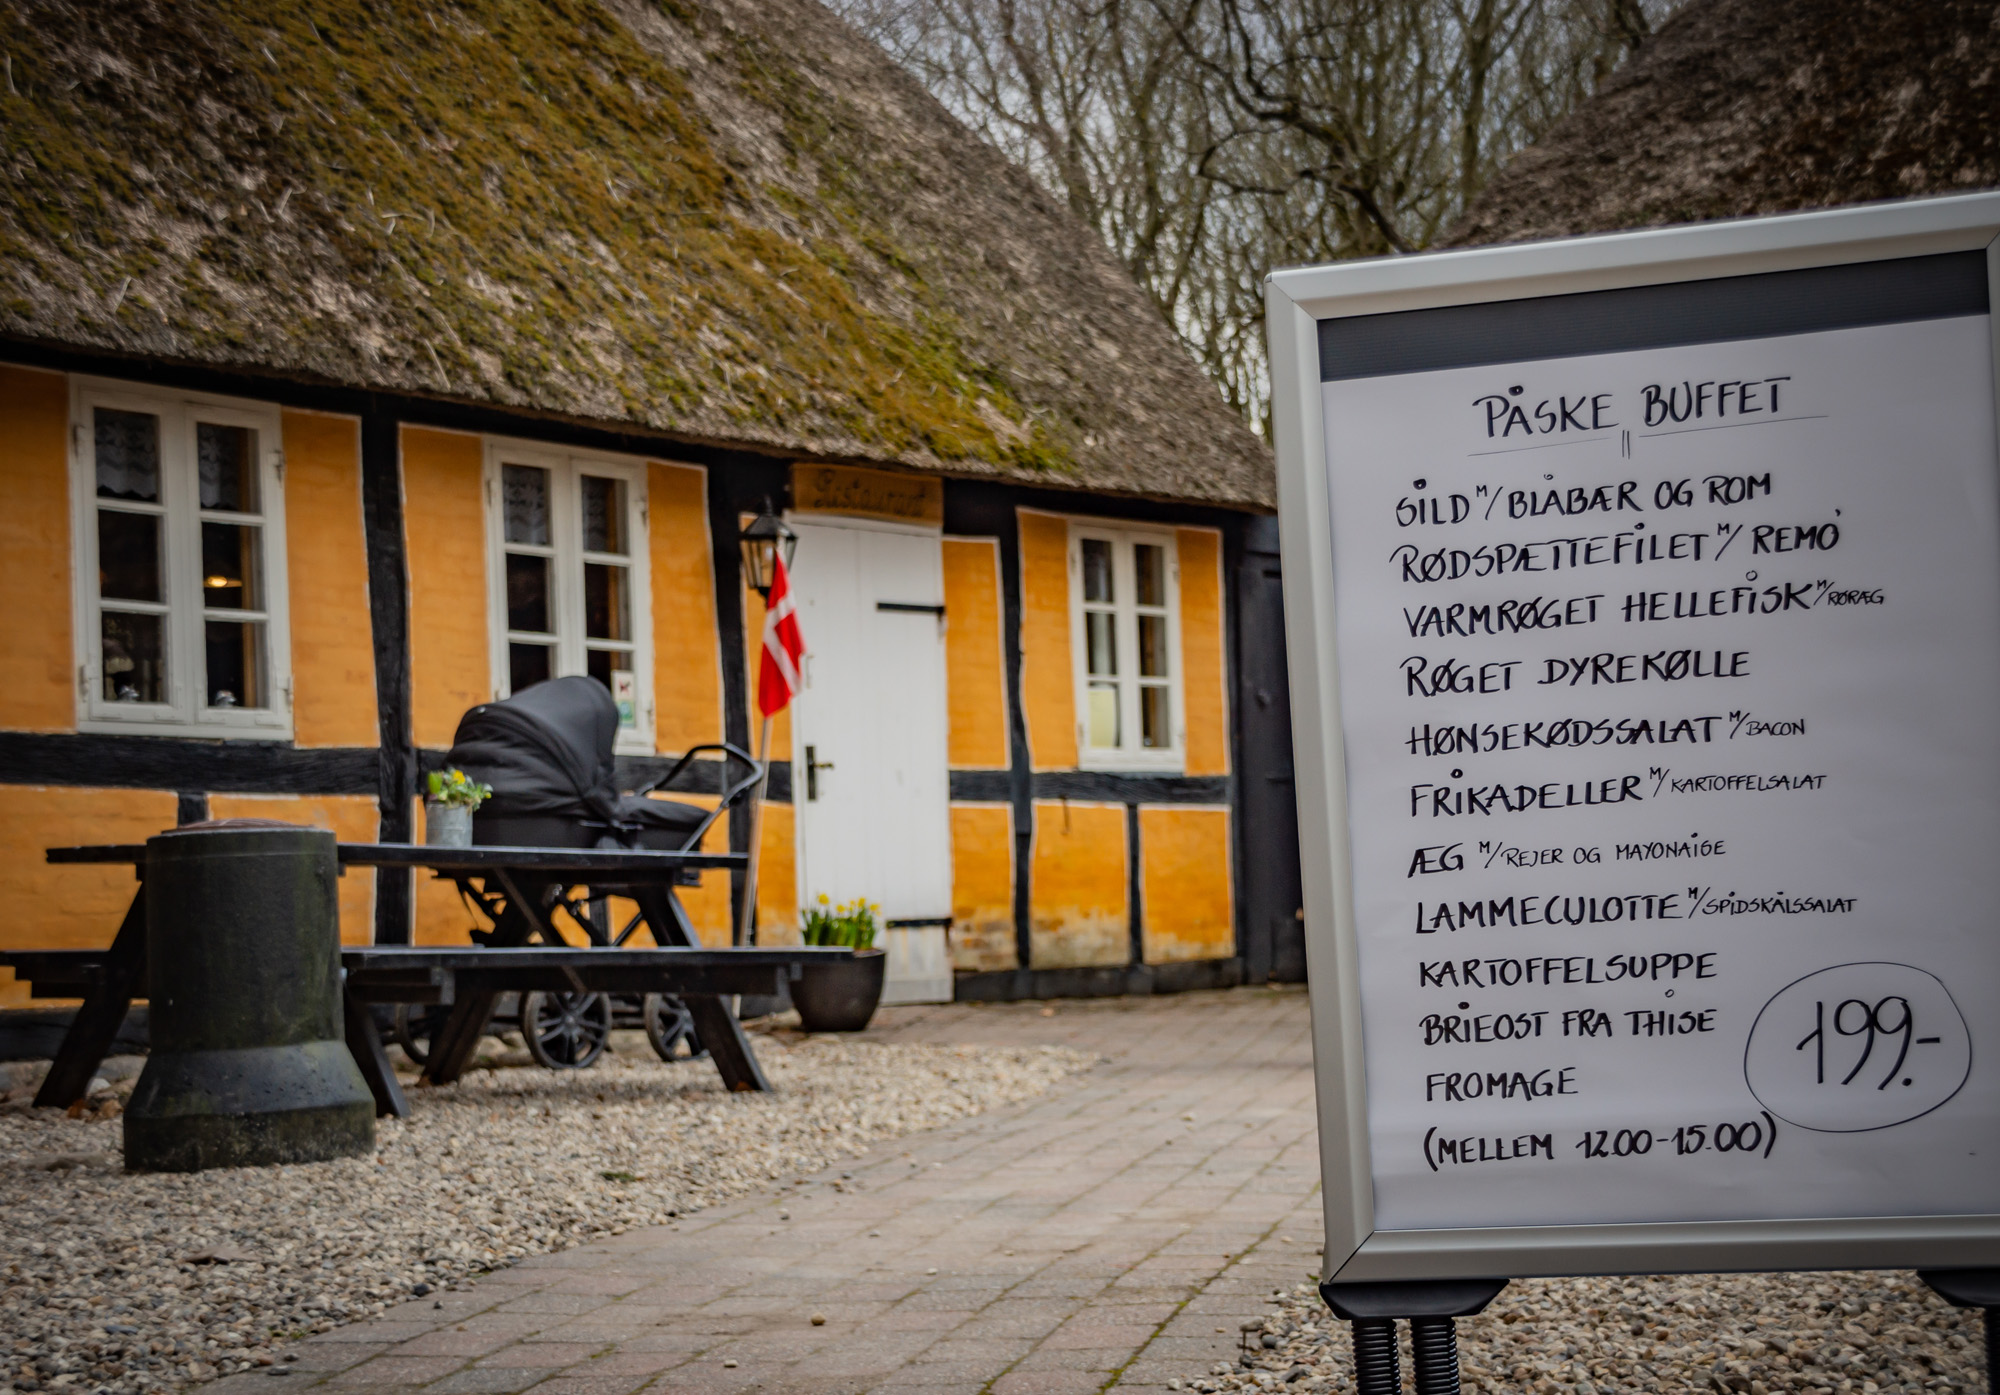 Restaurant
PÅSKE BUFFET
SILD M/ BLÅBÆR OG ROM
RØDSPÆTTEFILET M/ REMO'
VARMRØGET HELLEFISK M/ RØRÆG
RØGET DYREKØLLE
HØNSEKØDSSALAT M/ BACON
FRIKADELLER M/ KARTOFFELSALAT
ÆG M/ REJER OG MAYONAISE
LAMMECULOTTE M/ SPIDSKÅLSSALAT
KARTOFFELSUPPE
BRIEOST FRA THISE
FROMAGE
199.-
(MELLEM 12.00-15.00)